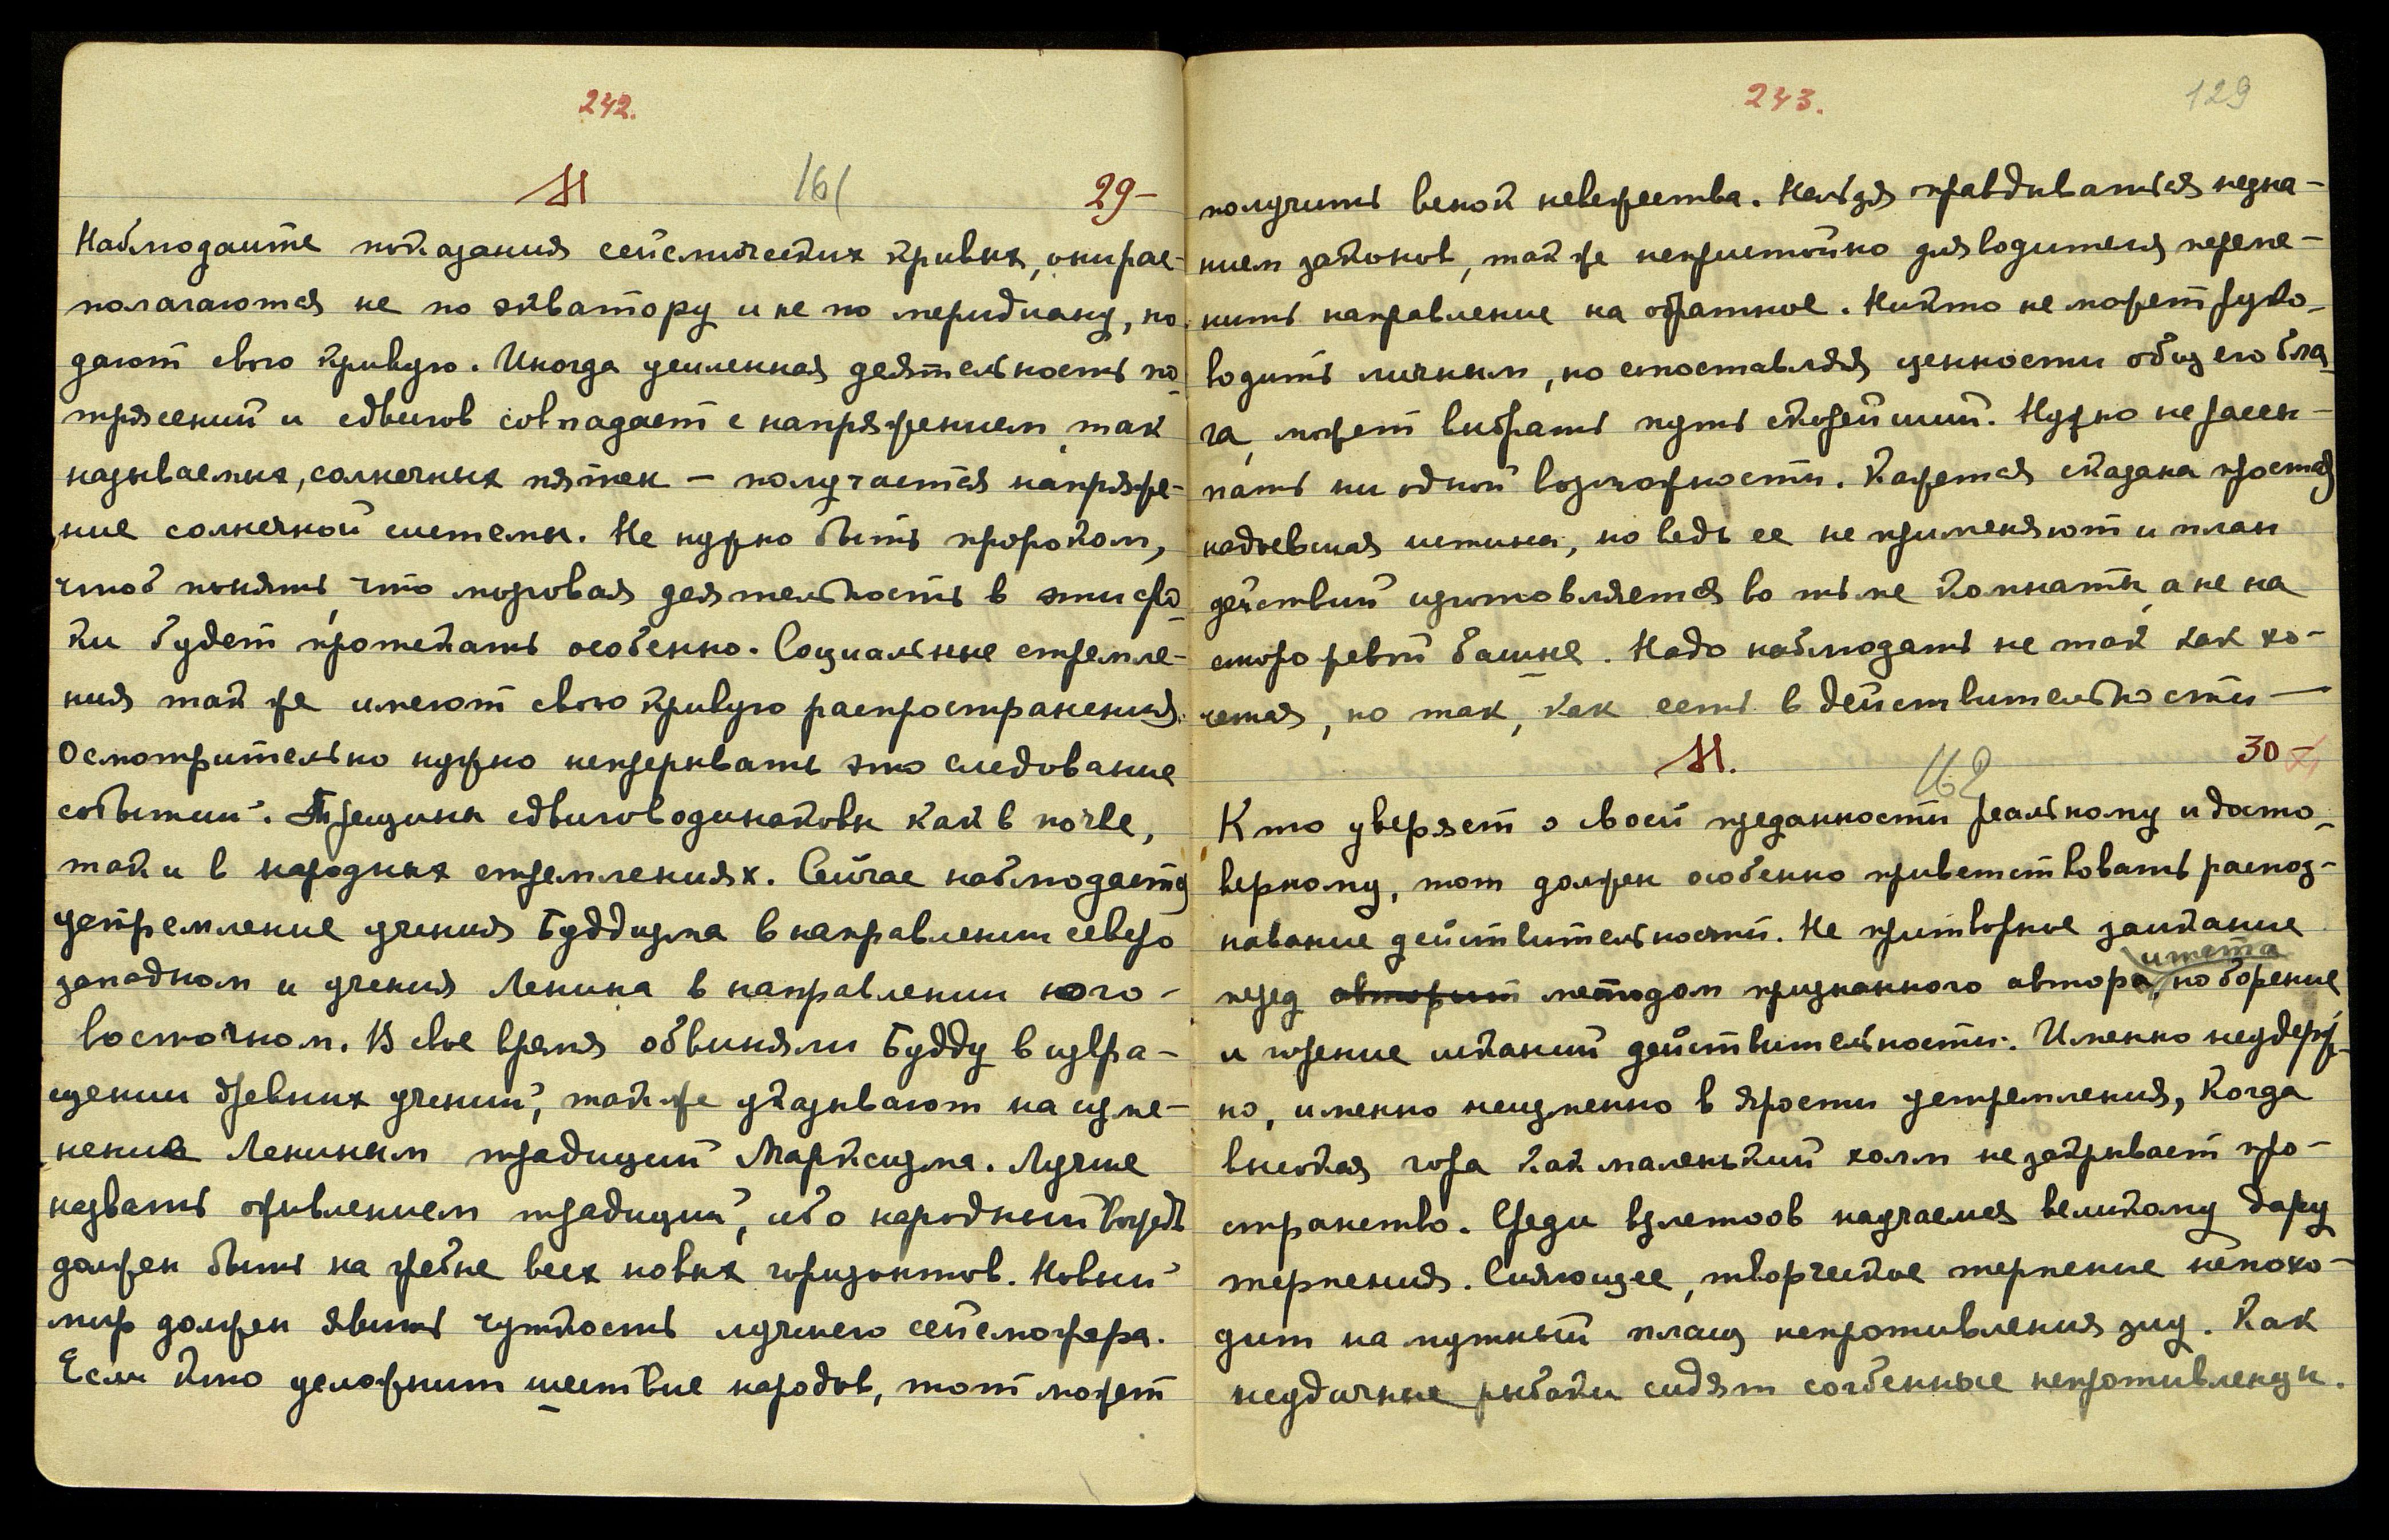 242.
М 161 29-
Наблюдайте показания сейсмических кривых, они рас-
полагаются не по экватору и не по меридиану, но
дают свою кривую. Иногда усиленная деятельность по-
трясений и сдвигов совпадает с напряжением, так
называемых, солнечных пятен – получается напряже-
ние солнечной системы. Не нужно быть пророком,
чтоб понять, что мозговая деятельность в эти сро-
ки будет протекать особенно. Социальные стремле-
ния так же имеют свою кривую распространения.
Осмотрительно нужно непрерывать это следование
событий. Трещины сдвигов одинаковы как в почве,
так и в народных стремлениях. Сейчас наблюдается
устремление учения Буддизма в направлении северо
западном и учения Ленина в направлении юго-
восточном. В свое время обвиняли Будду в извра-
щении древних учений, так же указывают на изме-
нение Лениным традиций Марксизма. Лучше
назвать оживлением традиций, ибо народный вождь
должен быть на гребне всех новых горизонтов. Новый
мир должен явить чуткость лучшего сейсмографа.
Если кто усложнит шествие народов, тот может
243. 129
получить венок невежества. Нельзя оправдываться незна-
нием законов, так же непристойно для водителя переме-
нить направление на обратное. Никто не может руко-
водить личным, но сопоставляя ценности общего бла-
га, может выбрать путь скорейший. Нужно не рассы-
пать ни одной возможности. Кажется сказана простая
надоевшая истина, но ведь ее не применяют и план
действий изготовляется во тьме комнаты, а не на
сторожевой башне. Надо наблюдать не так как хо-
чется, но так, как есть в действительности —
М. 162 30-
Кто уверяет о своей преданности реальному и досто-
верному, тот должен особенно приветствовать распоз-
навание действительности. Не притворное заикание
имета
перед авторит методом признанного автора, но борение
и горение исканий действительности. Именно неудерж-
но, именно неизменно в ярости устремления, когда
высокая гора как маленький холм не закрывает про-
странство. Среди взлетов научаемся великому дару
терпения. Сияющее, творческое терпение непохо-
дит на мутный плащ непротивления злу. Как
неудачные рыбаки сидят согбенные непротивленцы.